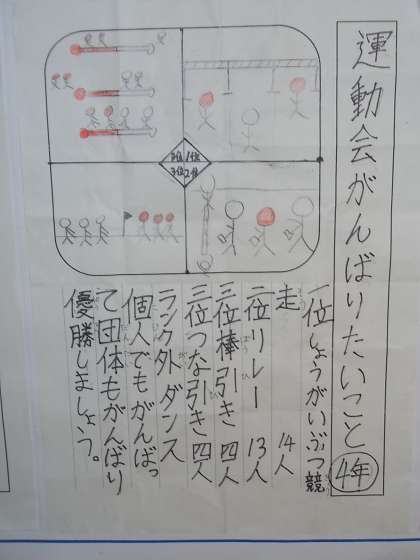 運動会がんばりたいこと 4年
一位しょうがいぶつ競
走 14人
二位リレー 13人
三位棒引き 四人
三位つな引き 四人
ランク外 ダンス
個人でもがんばっ
て団体もがんばり
優勝しましょう。
1位
2位
3位